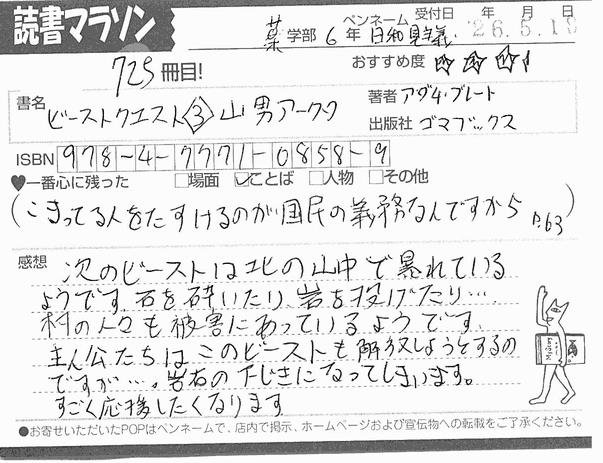 読書マラソン
薬 学部 6 年 ペンネーム 日和見主義 受付日 年 月 日 26.5.10
725 冊目! おすすめ度 ☆☆☆
書名 ビーストクエスト③山男アークタ 著者 アダム・ブレード
出版社 ゴマブックス
ISBN 978-4-7771-0858-9
♥一番心に残った □場面 ☑ことば □人物 □その他
(こまってる人をたすけるのが国民の義務なんですから P.63)
感想 次のビーストは北の山中で暴れている
ようです。石を砕いたり、岩を投げたり…。
村の人々も被害にあっているようです。
主人公たちはこのビーストも解放しようとするの
ですが…。岩石の下じきになってしまいます。
すごく応援したくなります
●お寄せいただいたPOPはペンネームで、店内で掲示、ホームページおよび宣伝物への転載をご了承ください。